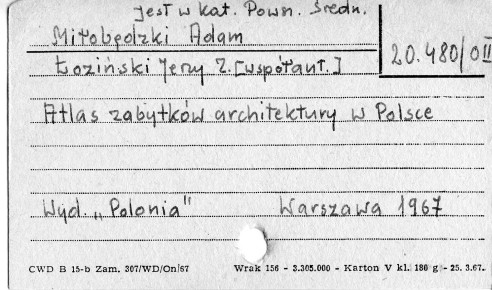 Jest w kat. Powsz. Średn.
Miłobędzki Adam
Łoziński Jerzy Z. [współaut.]
20.480/OII
Atlas zabytków architektury w Polsce
Wyd. „Polonia" Warszawa 1967
CWD B 15-b Zam. 307/WD/On/67 Wrak 156 - 3.305.000 - Karton V kl. 180 g - 25. 3.67.